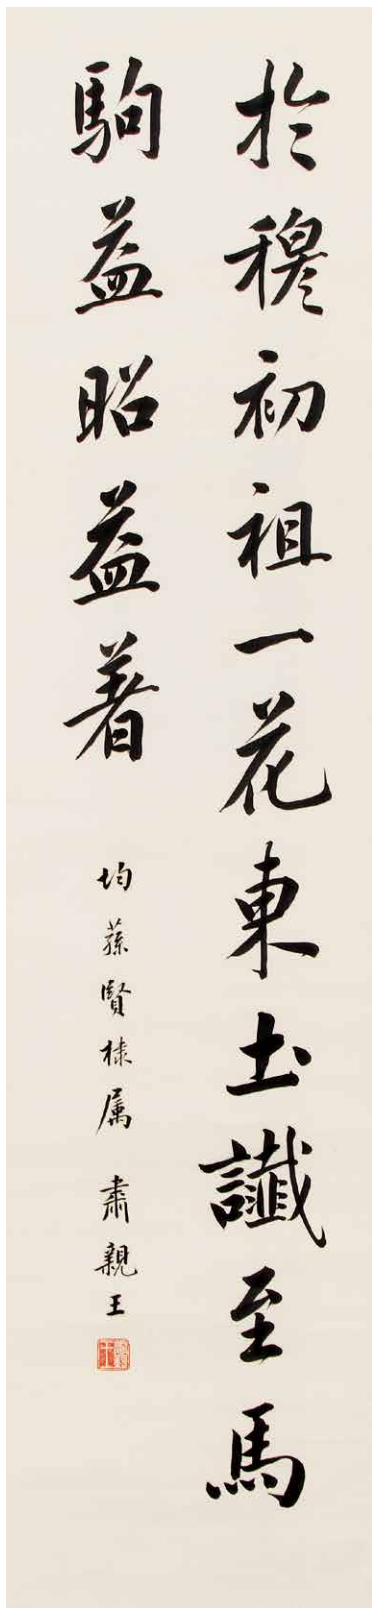 於穆初祖一花東土讖至馬
駒益昭益著
均蓀賢棣属 肅親王